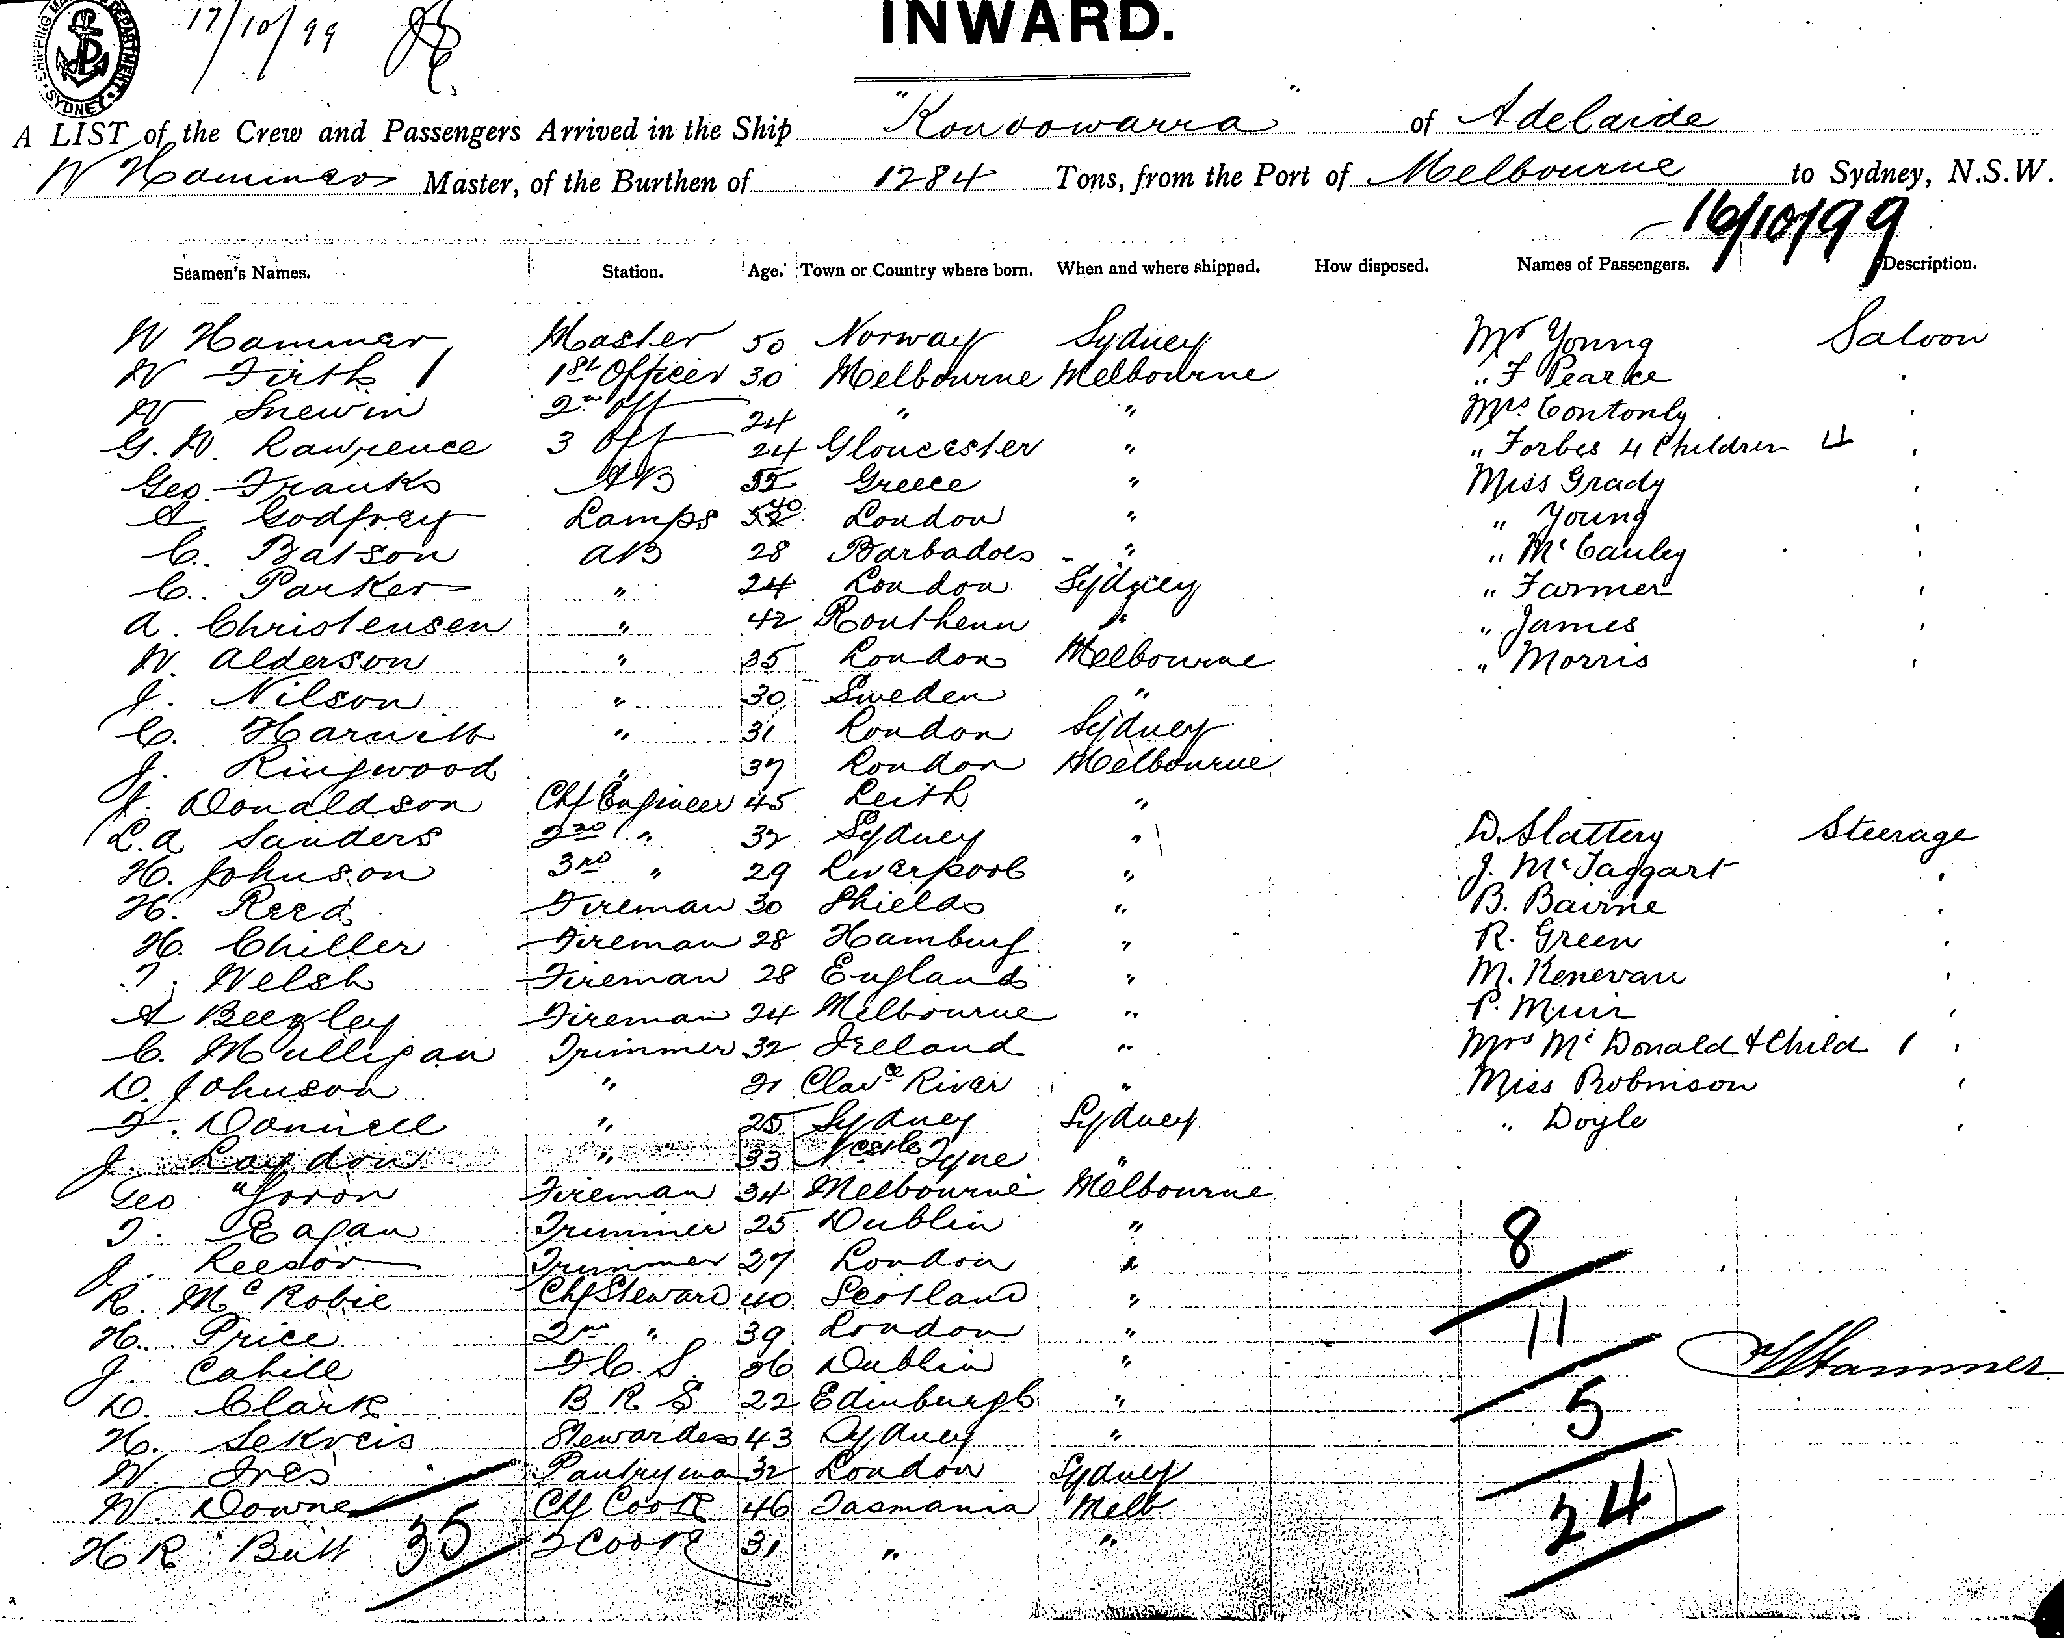 SHIPPING MASTER'S DEPARTMENT SYDNEY
17/10/99
INWARD.
A LIST of the Crew and Passengers Arrived in the Ship "Konoowarra" of Adelaide
W Hammer Master, of the Burthen of 1284 Tons, from the Port of Melbourne to Sydney, N.S.W.
16/10/99
Seamen's Names. Station. Age. Town or Country where born. When and where shipped. How disposed. Names of Passengers. Description.
W Hammer Master 50 Norway Sydney Mr Young Saloon
W Firth 1st Officer 30 Melbourne Melbourne " F Pearce "
W Snewin 2nd Off 24 " " Mrs Contonly "
G. W. Lawrence 3 Off 24 Gloucester " " Forbes 4 Children 4 "
Geo. Franks AB 55 Greece " Miss Grady "
A Godfrey Lamps 40 London " " Young "
C. Batson AB 28 Barbadoes " " McCauley "
C. Parker " 24 London Sydney " Farmer "
A. Christensen " 42 " " James "
W. Alderson " 35 London Melbourne " Morris "
J. Nilson " 30 Sweden "
C. " 31 London Sydney
J. Ringwood " 37 London Melbourne
J. Donaldson Chf Engineer 45 Leith "
L. A Sanders 2nd " 32 Sydney " D. Slattery Steerage
H. Johnson 3rd " 29 Liverpool " J. McTaggart "
H. Reed Fireman 30 Shields " B. Bairne "
H. Chiller Fireman 28 Hamburg " R. Green "
T. Welsh Fireman 28 England " M. Kenevan "
A Beegley Fireman 24 Melbourne " P. Muir "
C. Mulligan Trimmer 32 Ireland " Mrs McDonald & Child 1 "
D. Johnson " 21 Clarce River " Miss Robinson "
F. Donnell " 25 Sydney Sydney " Doyle "
J. Laydon " 33 Ncastle Tyne "
Geo Fireman 34 Melbourne Melbourne
T. Eagan Trimmer 25 Dublin " 8
J. Leesor Trimmer 27 London "
R. McRobie Chf Steward 40 Scotland " 11
H. Price 2nd " 39 London "
J. Cahill F C S. 36 Dublin " W Hammer
D. Clark B R S 22 Edinburgh " 5
H. Stewardess 43 Sydney "
W. Ives Pantryman 32 London Sydney
W. Downe Chf Cook 46 Tasmania Melb 24
H R Butt 35 2 Cook 31 " "